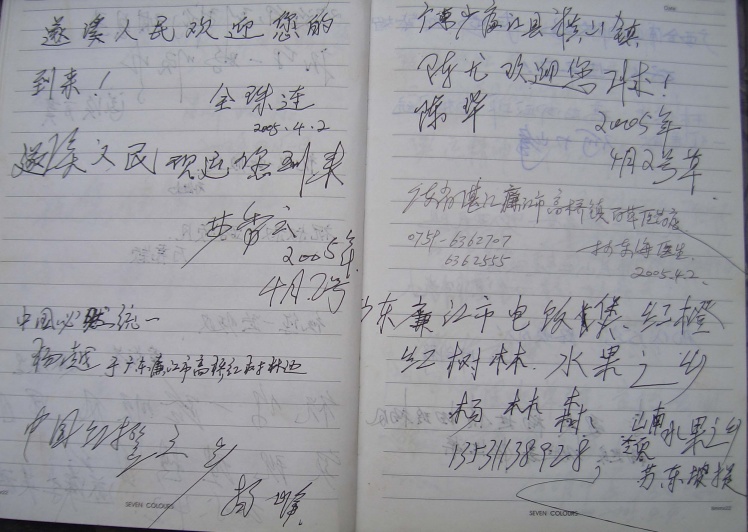 遂溪人民欢迎您的
到来!
全珠连
2005.4.2
遂溪人民 观迎您到来
2005年
4月2号
中国必然统一
杨越于广东廉江市高桥红树林边
中国红橙之乡
杨
SEVEN COLOURS
广东省廉江县横山镇
陈龙欢迎您到来!
陈
2005年
4月2号
湛江廉江市高桥镇百草医药店
0759-6362707
6362555
医生
2005.4.2.
广东廉江市电饭煲、红橙
红树林.水果之乡
杨林
13531138928
岭南水果之乡
苏东坡提
SEVEN COLOURS